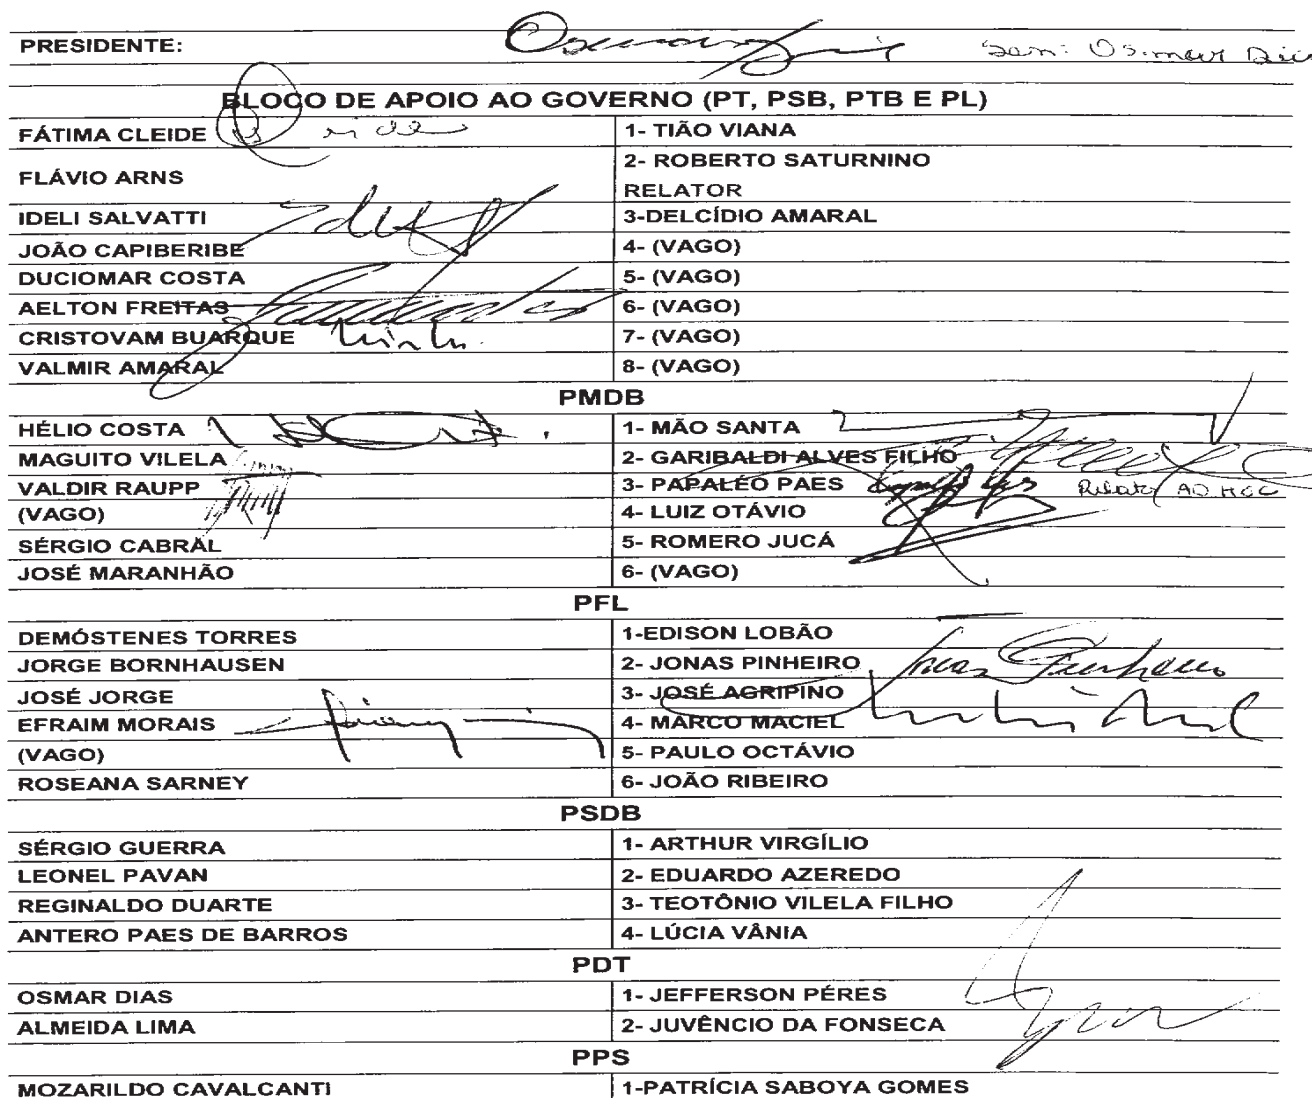 PRESIDENTE: Sen: Osmar Dias
BLOCO DE APOIO AO GOVERNO (PT, PSB, PTB E PL)
FÁTIMA CLEIDE 1- TIÃO VIANA
FLÁVIO ARNS 2- ROBERTO SATURNINO
RELATOR
IDELI SALVATTI 3-DELCÍDIO AMARAL
JOÃO CAPIBERIBE 4- (VAGO)
DUCIOMAR COSTA 5- (VAGO)
AELTON FREITAS 6- (VAGO)
CRISTOVAM BUARQUE 7- (VAGO)
VALMIR AMARAL 8- (VAGO)
PMDB
HÉLIO COSTA 1- MÃO SANTA
MAGUITO VILELA 2- GARIBALDI ALVES FILHO
VALDIR RAUPP 3- PAPALÉO PAES Relator AD HOC
(VAGO) 4- LUIZ OTÁVIO
SÉRGIO CABRAL 5- ROMERO JUCÁ
JOSÉ MARANHÃO 6- (VAGO)
PFL
DEMÓSTENES TORRES 1-EDISON LOBÃO
JORGE BORNHAUSEN 2- JONAS PINHEIRO Jonas Pinheiro
JOSÉ JORGE 3- JOSÉ AGRIPINO
EFRAIM MORAIS 4- MARCO MACIEL
(VAGO) 5- PAULO OCTÁVIO
ROSEANA SARNEY 6- JOÃO RIBEIRO
PSDB
SÉRGIO GUERRA 1- ARTHUR VIRGÍLIO
LEONEL PAVAN 2- EDUARDO AZEREDO
REGINALDO DUARTE 3- TEOTÔNIO VILELA FILHO
ANTERO PAES DE BARROS 4- LÚCIA VÂNIA
PDT
OSMAR DIAS 1- JEFFERSON PÉRES
ALMEIDA LIMA 2- JUVÊNCIO DA FONSECA
PPS
MOZARILDO CAVALCANTI 1-PATRÍCIA SABOYA GOMES